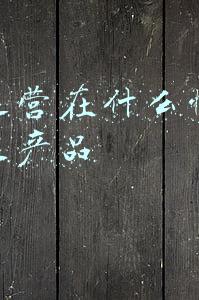 营在什么
产品